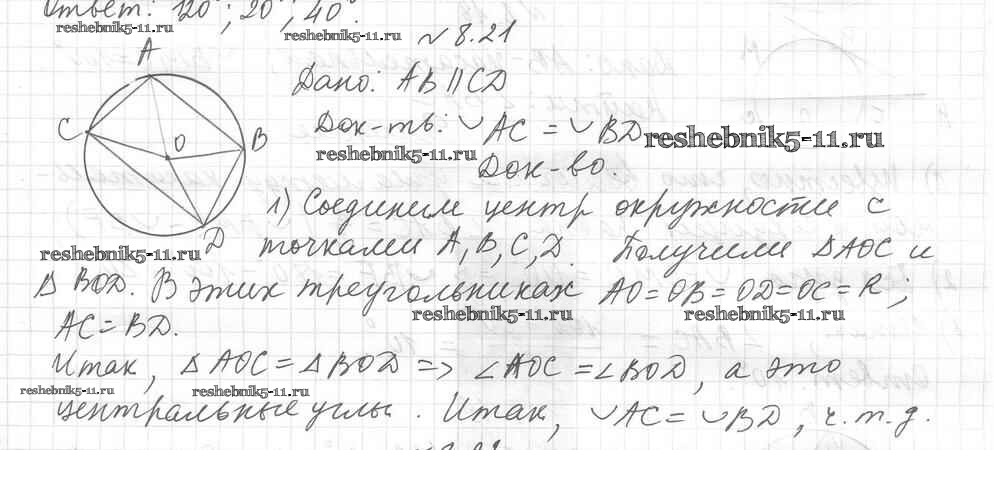 Ответ: 120°; 20°; 40°.
reshebnik5-11.ru
reshebnik5-11.ru
№ 8.21
A
Дано: AB || CD
C
O
B
Док-ть: ◡ AC = ◡ BD
reshebnik5-11.ru
reshebnik5-11.ru
Док-во.
1) Соединим центр окружности с
D
точками A, B, C, D. Получили Δ AOC и
reshebnik5-11.ru
Δ BOD. В этих треугольниках AO = OB = OD = OC = R;
reshebnik5-11.ru
reshebnik5-11.ru
AC = BD.
Итак, Δ AOC = Δ BOD => ∠AOC = ∠BOD, а это
reshebnik5-11.ru
reshebnik5-11.ru
центральные углы. Итак, ◡ AC = ◡ BD, ч.т.д.